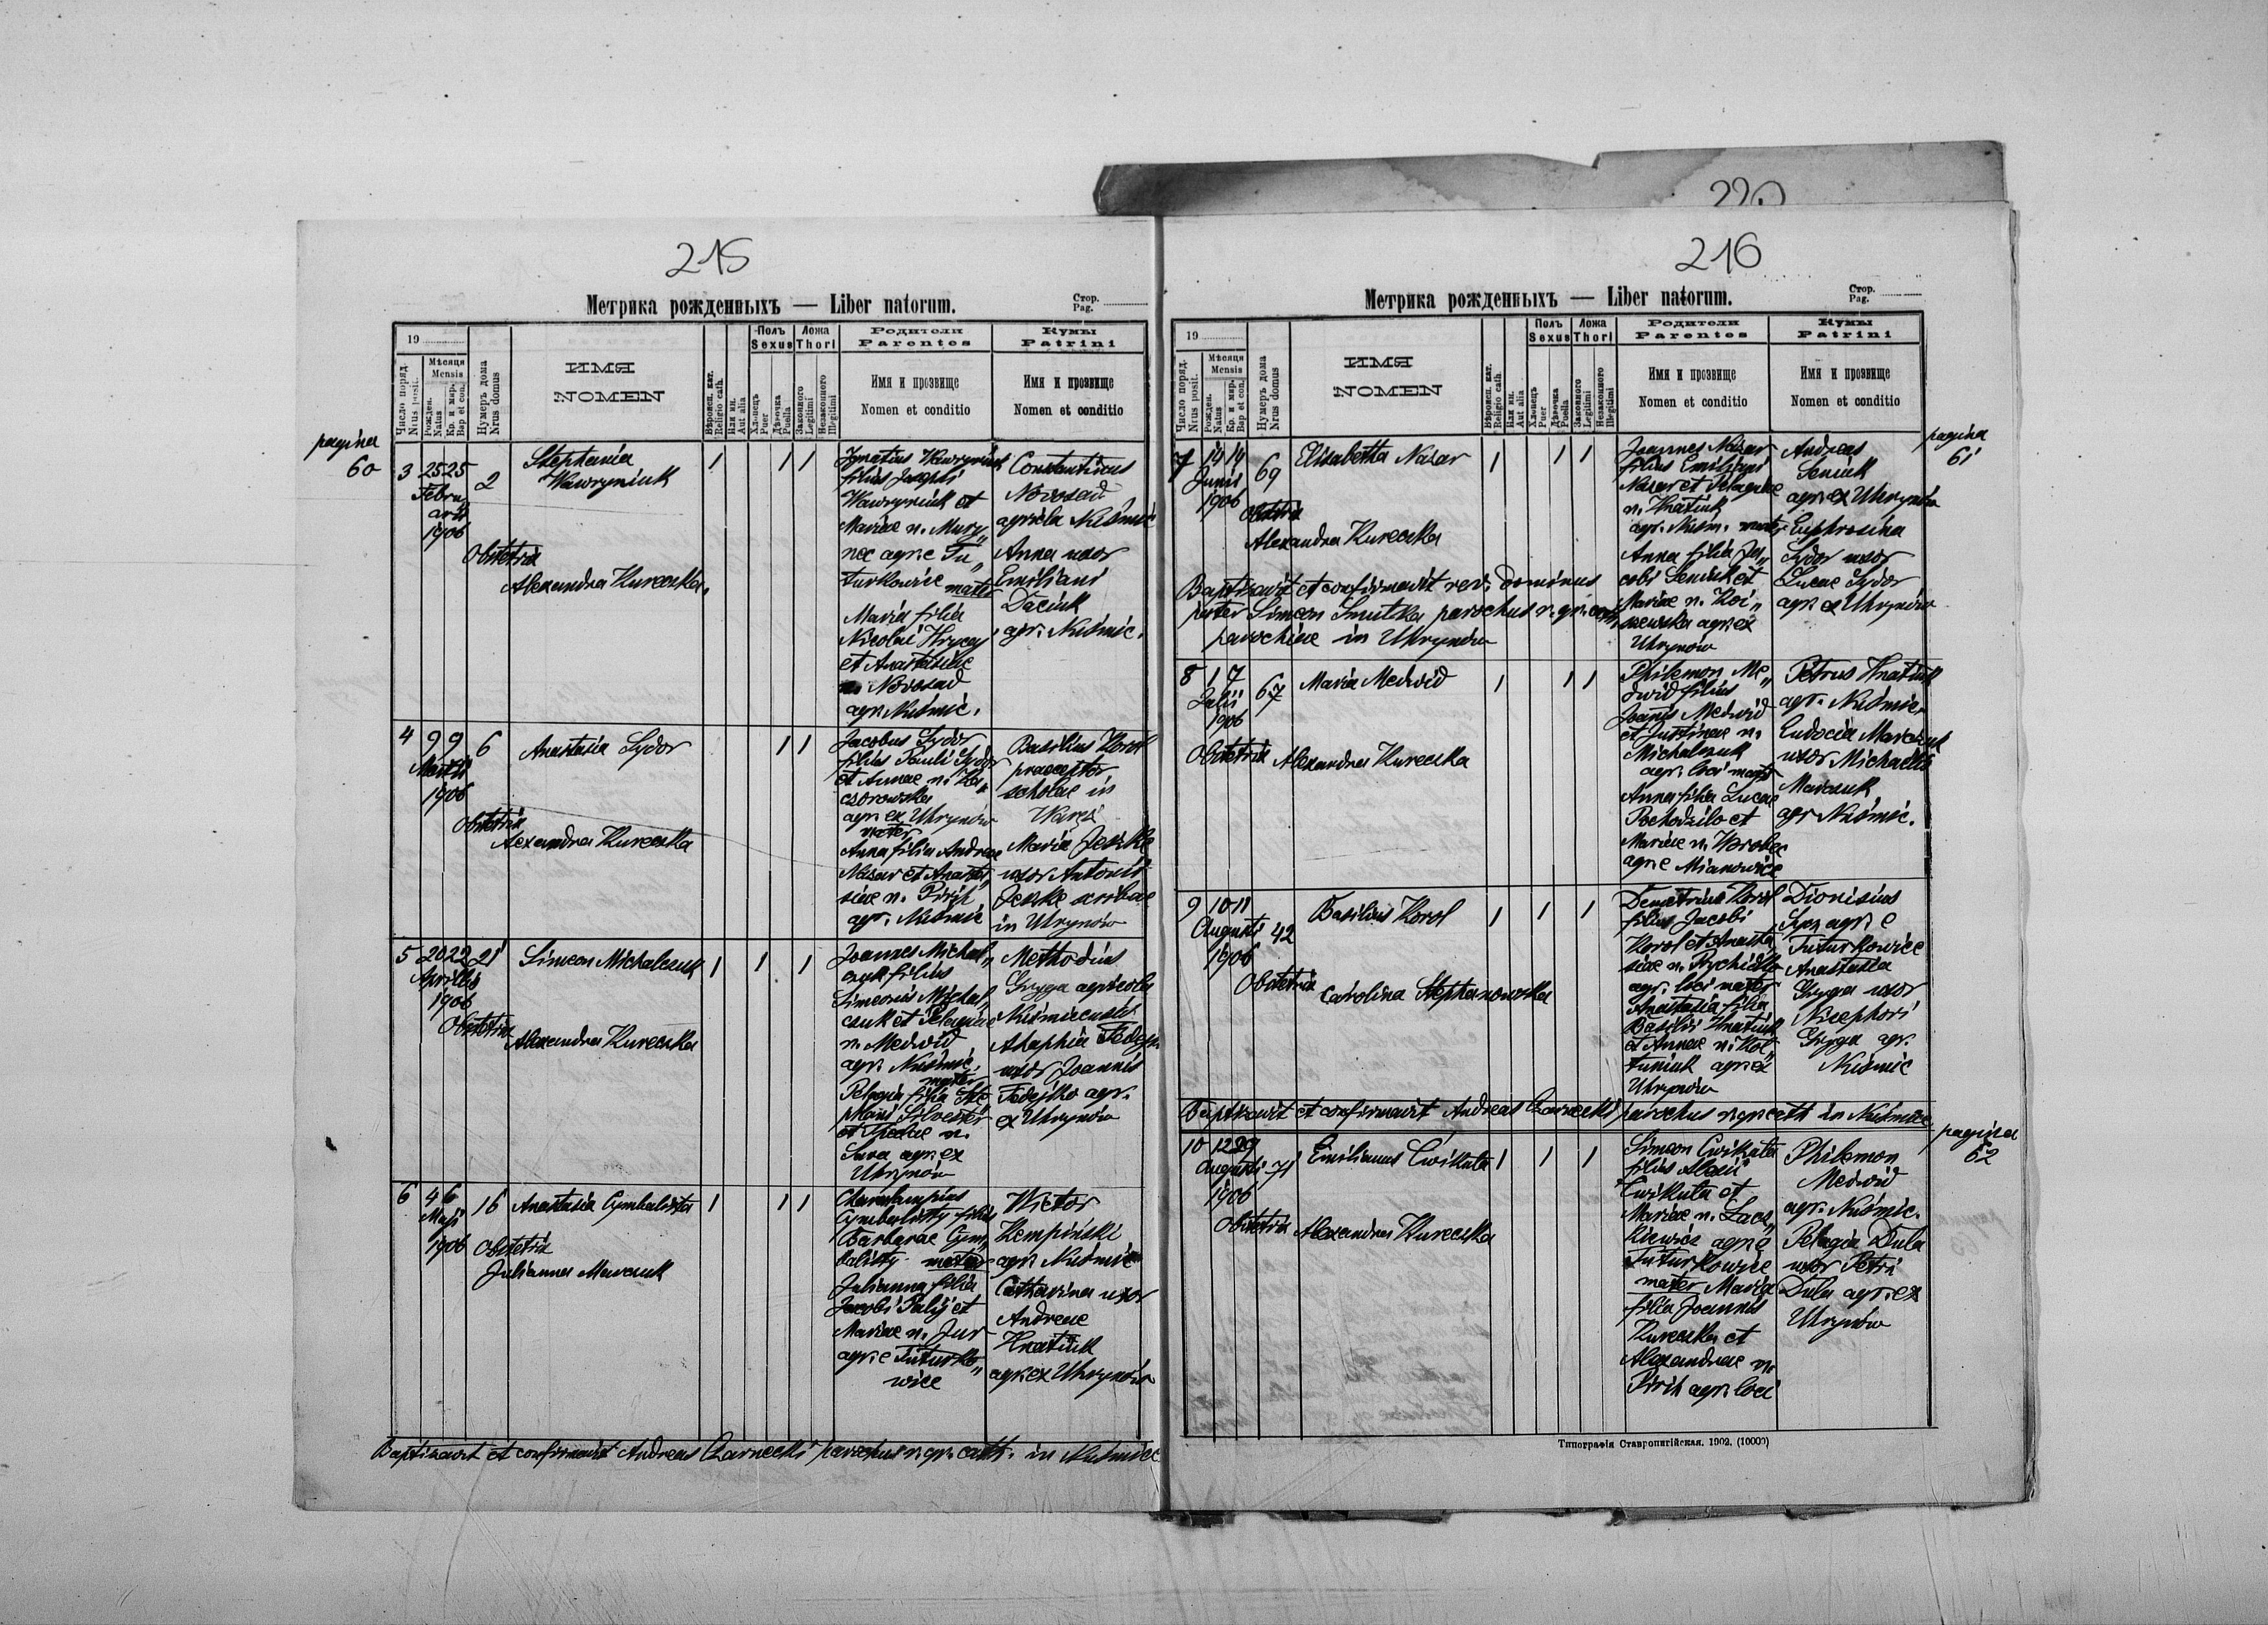 220
215
Метрика рожденныхъ — Liber natorum.
Стор.
Pag.
19
Число поряд.
Nrus posit.
Мѣсяця
Mensis
Рожден.
Natus
Кр. и мир.
Bap et con.
Нумеръ дома
Nrus domus
ИМЯ
NOMEN
Вѣроисп. кат.
Religio cath.
Или ин.
Aut alia
Полъ
Sexus
Хлопецъ
Puer
Дѣвочка
Puella
Ложа
Thori
Законного
Legitimi
Незаконного
Illegitimi
Родители
Parentes
Имя и прозвище
Nomen et conditio
Кумы
Patrini
Имя и прозвище
Nomen et conditio
pagina
60
3 25 25
Febru„
arii
1906
2
Stephania
Wawryniuk
Obstetrix
Alexandra Kureczka.
1 1 1
Ignatius Wawryniuk
filius Josephi
Wawryniuk et
Mariae n. Mury„
nec agr. e Tu„
turkowice mater
Maria filia
Nicolai Hrycaj
et Anastasiae
n. Novosad
agr. Nuśmic.
Constantinus
Novosad
agricola Nuśmic
Anna uxor
Emiliani
Daciuk
agr. Nuśmic.
4 9 9
Martii
1906
6
Anastasia Sydor
Obstetrix
Alexandra Kureczka
1 1
Jacobus Sydor
filius Pauli Sydor
et Annae n. Ka„
czorowska
agr. ex Uhrynów
mater
Anna filia Andreae
Nazar et Anasta„
siae n. Pirih
agr. Nuśmic
Basilius Korol
praeceptor
scholae in
Waręż
Maria Jeszke
uxor Antonii
Jeszke scribae
in Uhrynów
5 20 22
Aprilis
1906
21
Simeon Michalczuk
Obstetrix
Alexandra Kureczka
1 1 1
Joannes Michal„
czuk filius
Simeonis Michal„
czuk et Pelagiae
n. Medwid
agr. Nuśmic.
mater
Pelagia filia Ste„
phani Silvester
et Theclae n.
Sawa agr. ex
Uhrynów
Methodius
Gryga agricola
Nuśmicensis
Ahaphia Fedejko
uxor Joannis
Fedejko agr.
ex Uhrynów
6 4 6
Maji
1906
16
Anastasia Cymbalista
Obstetrix
Julianna Marczuk
1 1 1
Charalampius
Cymbalisty filius
Barbarae Cym„
balisty mater
Julianna filia
Jacobi Palij et
Mariae n. Jur
agr. e Tuturko„
wice
Wictor
Kempiński
agr. Nuśmic
Catharina uxor
Andreae
Hnatiuk
agr. ex Uhrynów
Baptizavit et confirmavit Andreas Czarnecki parochus r. gr. cath. in Nuśmice
216
Метрика рожденныхъ — Liber natorum.
Стор.
Pag.
19
Число поряд.
Nrus posit.
Мѣсяця
Mensis
Рожден.
Natus
Кр. и мир.
Bap et con.
Нумеръ дома
Nrus domus
ИМЯ
NOMEN
Вѣроисп. кат.
Religio cath.
Или ин.
Aut alia
Полъ
Sexus
Хлопецъ
Puer
Дѣвочка
Puella
Ложа
Thori
Законного
Legitimi
Незаконного
Illegitimi
Родители
Parentes
Имя и прозвище
Nomen et conditio
Кумы
Patrini
Имя и прозвище
Nomen et conditio
pagina
61
7 14 14
Junii
1906
69
Elisabetha Nazar
Obstetrix
Alexandra Kureczka
1 1 1
Joannes Nazar
filius Emiliani
Nazar et Pelagiae
n. Hnatiuk
agr. Nuśm. mater
Anna filia Ja„
cobi Seniuk et
Mariae n. Koi„
szewska agr. ex
Uhrynów
Andreas
Seniuk
agr. ex Uhrynów
Euphrosina
Sydor uxor
Lucae Sydor
agr. ex Uhrynów
Baptizavit et confirmavit rev. dominus
pater Simeon Smulka parochus r. gr. cath.
parochiae in Uhrynów
8 1 7
Julii
1906
67
Maria Medwid
Obstetrix Alexandra Kureczka
1 1 1
Philemon Me„
dwid filius
Joannis Medwid
et Justinae n.
Michalczuk
agr. loci mater
Anna filia Lucae
Pochodziło et
Mariae n. Worobec
agr. e Mianowice
Petrus Hnatiuk
agr. Nuśmic.
Eudocia Marczuk
uxor Michaelis
Marczuk
agr Nuśmic.
9 10 11
Augusti
1906
42
Basilius Korol
Obstetrix Carolina Stephanowska
1 1 1
Demetrius Korol
filius Jacobi
Korol et Anasta„
siae n. Prychidko
agr. loci mater
Anastasia filia
Basilii Hnatiuk
et Annae n. Koł„
tuniuk agr. ex
Uhrynów
Dionisius
agr. e
Tuturkowice
Anastasia
Gryga uxor
Nicephori
Gryga agr.
Nuśmic
Baptizavit et confirmavit Andreas Czarnecki parochus r. gr. cath in Nuśmice
pagina
62
10 12 29
Augusti
1906
71
Emilianus Ćwikuła
Obstetrix Alexandra Kureczka
1 1 1
Simeon Cwikuła
filius Alexii
Cwikuła et
Mariae n. Łacz„
kiewicz agr. e
Tuturkowice
mater Maria
filia Joannis
Kureczka et
Alexandrae n.
Pirih agr. loci
Philemon
Medwid
agr. Nuśmic.
Pelagia Dula
uxor Petri
Dula agr. ex
Uhrynów
Типографія Ставропигійская. 1902. (10000)